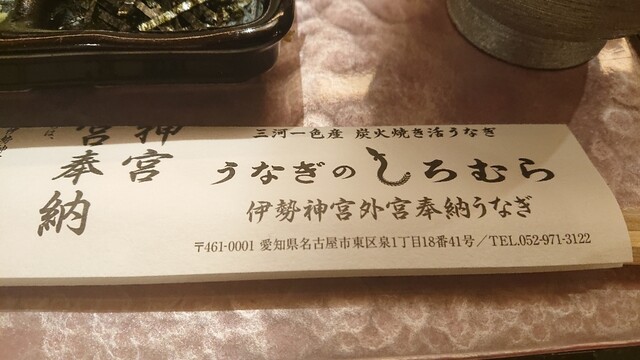 三河一色産 炭火焼き活うなぎ
うなぎのしろむら
伊勢神宮外宮奉納うなぎ
〒461-0001 愛知県名古屋市東区泉1丁目18番41号／TEL.052-971-3122
神宮
宮奉納